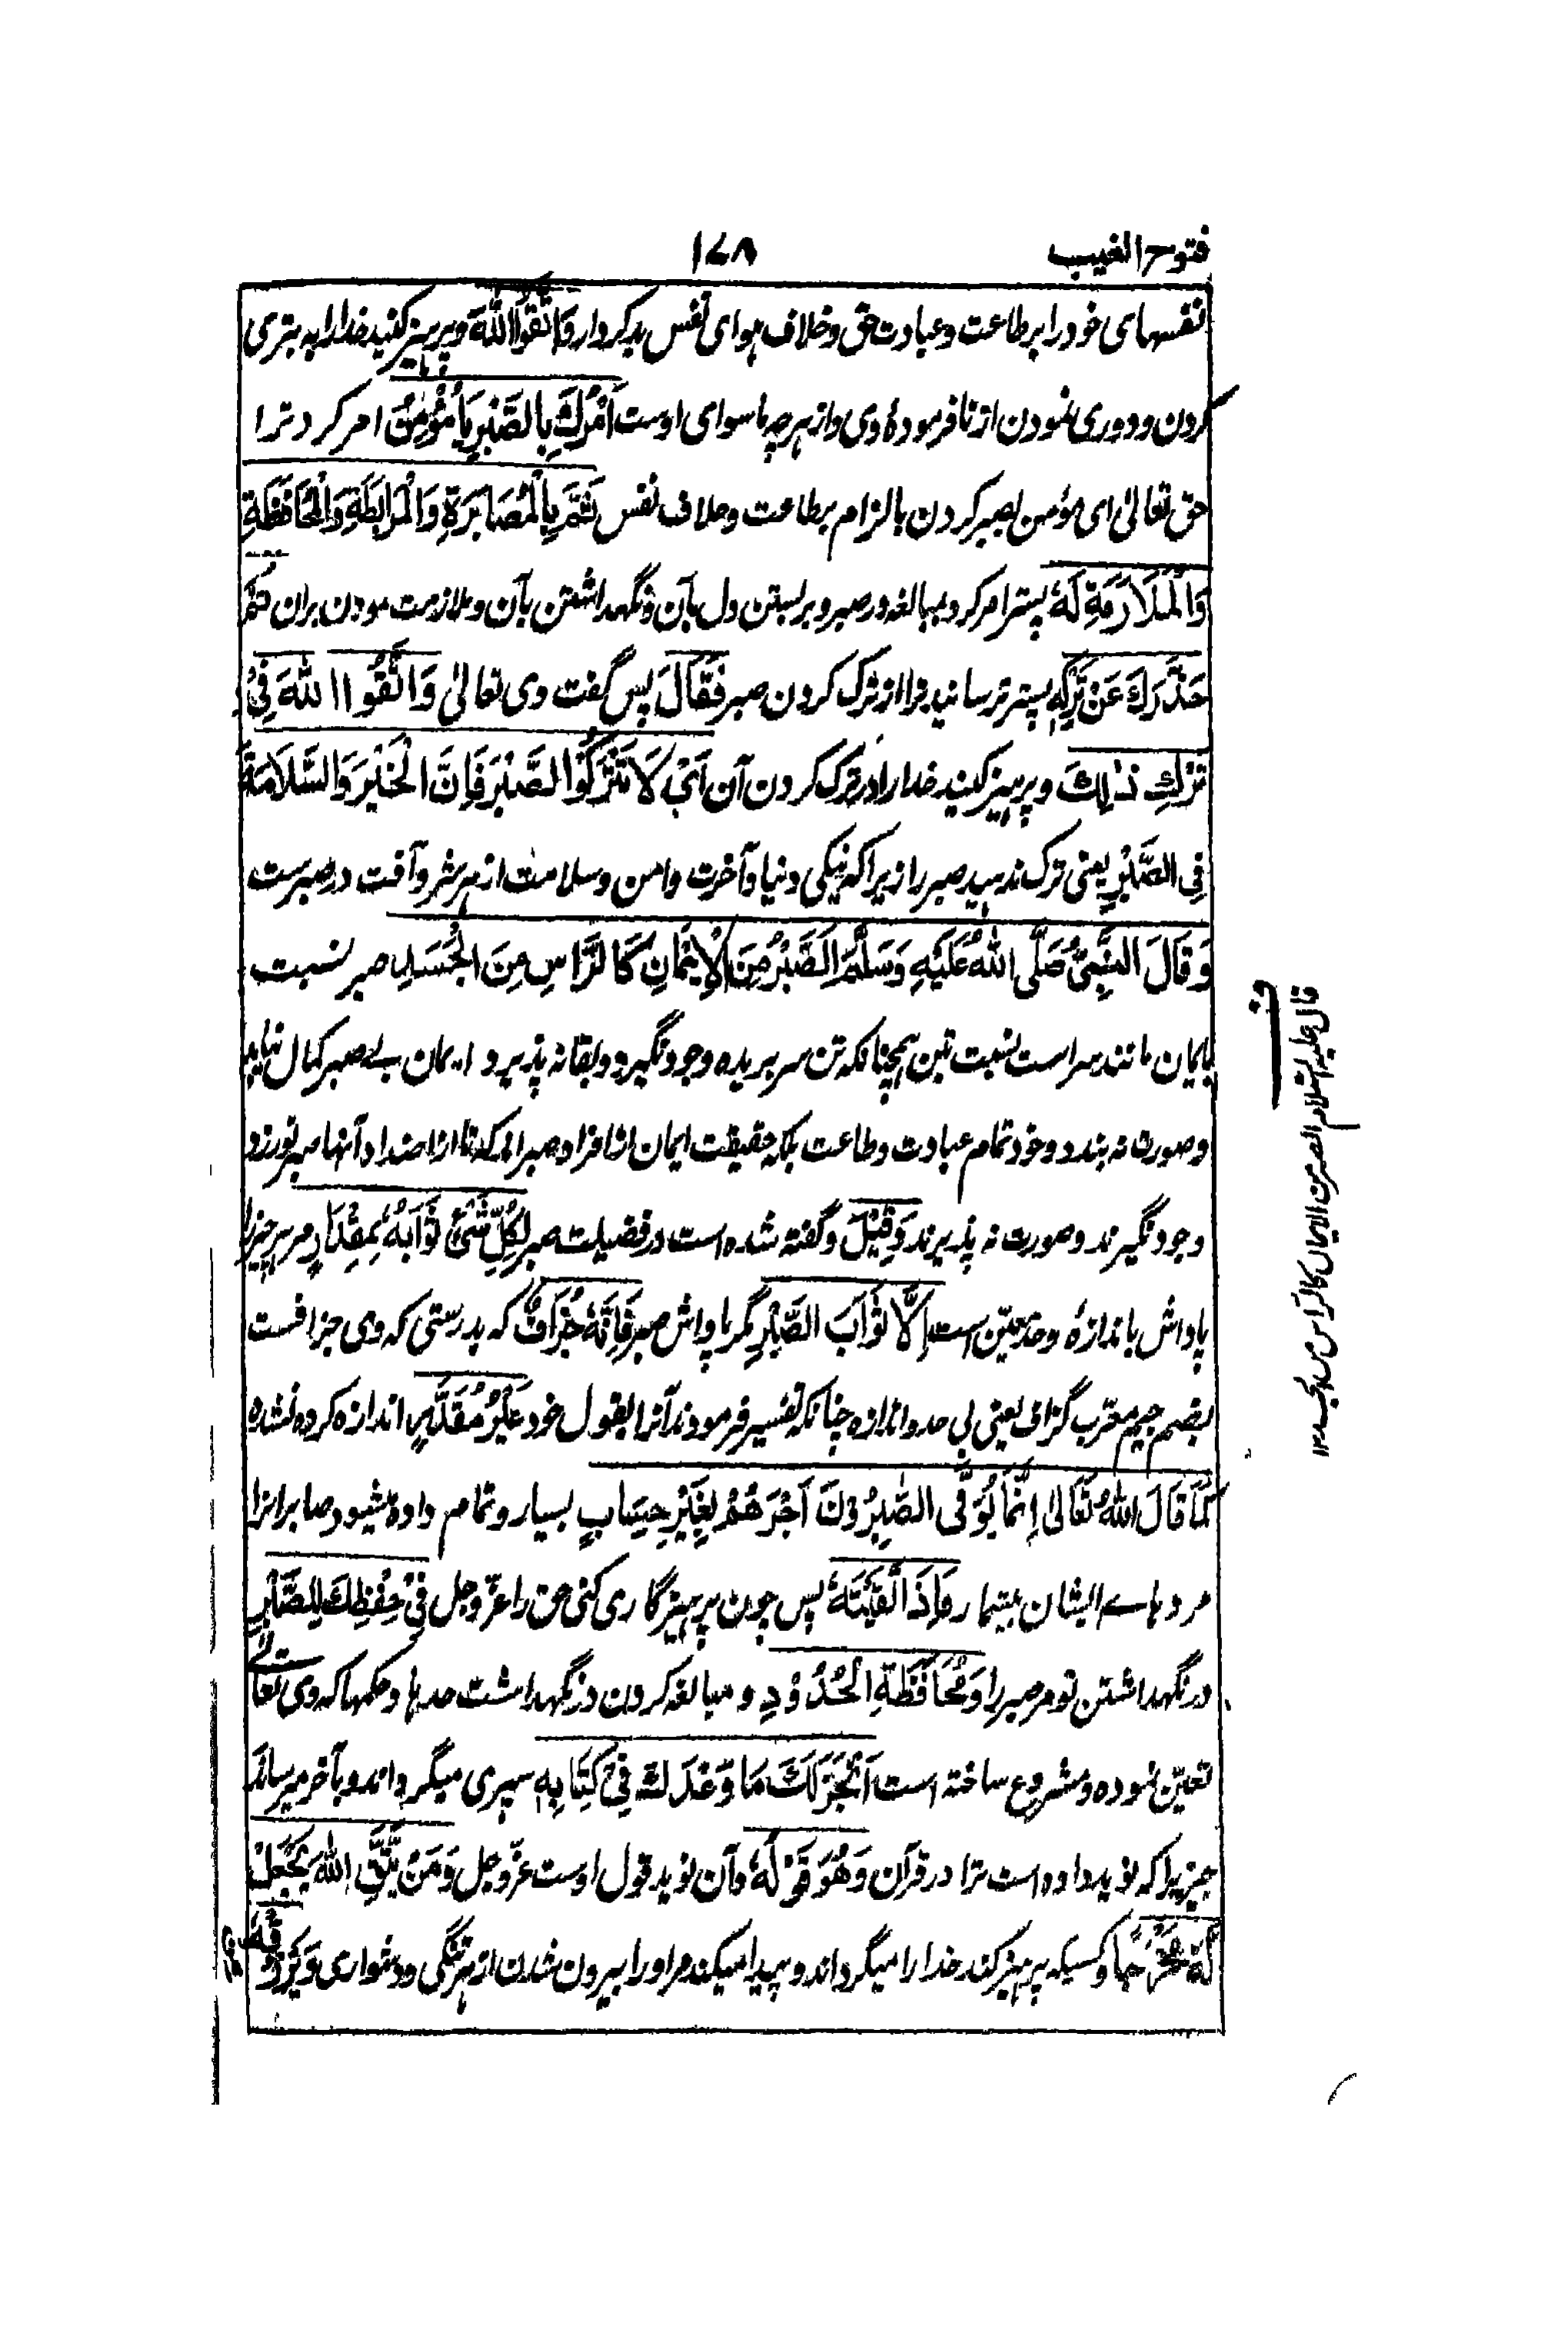 فتوح الغیب ۱۷۸
نفسهای خود را بر طاعت و عبادت حق و خلاف هوای نفس بد کردار وَاتَّقُوا اللّٰهَ و پرهیز کنید خدا را به بتری
کردن و دوری نمودن از نافرمودهٔ وی و از هر چه ماسوای اوست اَمَرَكَ بِالصَّبْرِ يَا مُؤْمِنُ امر کرد ترا
حق تعالیٰ ای مؤمن بصبر کردن بالزام بطاعت و خلاف نفس ثُمَّ بِالْمُصَابَرَةِ وَالْمُرَابَطَةِ وَالْمُحَافَظَةِ
وَالْمُلَازَمَةِ لَهٗ پستر امر کرد بمبالغه در صبر و بر بستن دل بآن و نگهداشتن بآن و ملازمت نمودن بران ثُمَّ
حَذَّرَكَ عَنْ تَرْكِهٖ پستر ترسانید ترا از ترک کردن صبر فَقَالَ پس گفت وی تعالیٰ وَاتَّقُوا اللّٰهَ فِیْ
تَرْكِ ذٰلِكَ و پرهیز کنید خدا را در ترک کردن آن اَیْ لَا تَتْرُكُوا الصَّبْرَ فَاِنَّ الْخَيْرَ وَالسَّلَامَةَ
فِی الصَّبْرِ یعنی ترک ندهید صبر را زیرا که نیکی دنیا و آخرت و امن و سلامت از هر شر و آفت در صبرست
وَقَالَ النَّبِیُّ صَلَّی اللّٰهُ عَلَيْهِ وَسَلَّمَ اَلصَّبْرُ مِنَ الْاِيْمَانِ كَالرَّاْسِ مِنَ الْجَسَدِ صبر نسبت
بایمان مانند سر است نسبت بتن همچنانکه تن سر بریده وجود نگیرد و بقا نه پذیرد ایمان بے صبر کمال نیابد
و صورت نه بندد و خود تمام عبادت و طاعت بلکه حقیقت ایمان از افراد صبر اند که تا از اضداد آنها صبر نورزد
وجود نگیرند و صورت نه پذیرند وَقِيْلَ و گفته شده است در فضیلت صبر لِكُلِّ شَیْءٍ ثَوَابُهٗ بِمِقْدَارٍ مر هر چیز را
پاداش باندازهٔ و حد معیّن است اِلَّا ثَوَابَ الصَّبْرِ مگر پاداش صبر فَاِنَّهٗ جُزَافٌ که بدرستی که وی جزافست
بضم جیم معرّب گزاف یعنی بی حد و اندازه چنانکه تفسیر فرمودند آنرا بقول خود غَيْرُ مُقَدَّرٍ اندازه کرده نشده
كَمَا قَالَ اللّٰهُ تَعَالیٰ اِنَّمَا يُوَفَّی الصّٰبِرُوْنَ اَجْرَهُمْ بِغَيْرِ حِسَابٍ بسیار و تمام داده میشود صابرانرا
مردهاے ایشان بیشمار فَاِذَا اتَّقَيْتَهٗ پس چون پرهیزگاری کنی حق را عزّ و جل فِیْ حِفْظِكَ لِلصَّبْرِ
در نگهداشتن تو مر صبر را وَمُحَافَظَةِ الْحُدُوْدِ و مبالغه کردن در نگهداشت حدها و حکمها که وی تعالے
تعیّن نموده و مشروع ساخته است اَنْجَزَ لَكَ مَا وَعَدَكَ فِیْ كِتَابِهٖ سپری میگرداند و بآخر میرساند
چیزیرا که نوید داده است ترا در قرآن وَهُوَ قَوْلُهٗ و آن نوید قول اوست عزّ و جل وَمَنْ يَّتَّقِ اللّٰهَ يَجْعَلْ
لَّهٗ مَخْرَجًا و کسیکه پرهیز کند خدا را میگرداند و پیدا میکند مر او را بیرون شدن از هر تنگی و دشواری وَيَرْزُقْهُ
قال علیه السلام الصبر من الایمان کالرأس من الجسد ۱۲